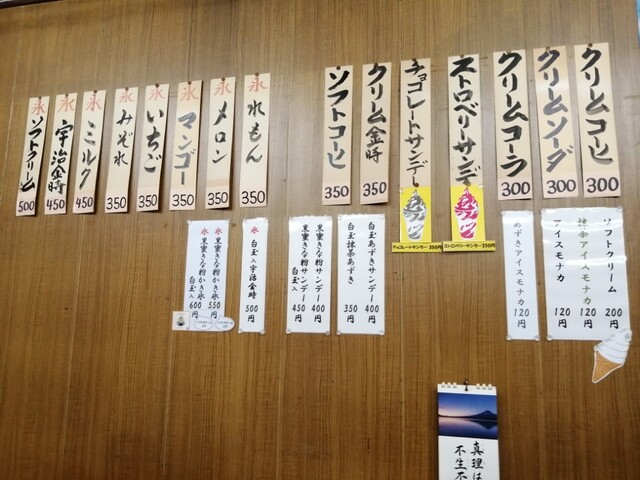 クリームコーヒ 300
クリームソーダ 300
クリームコーラ 300
ストロベリーサンデー
ストロベリーサンデー 350円
チョコレートサンデー
チョコレートサンデー 350円
クリーム金時 350
ソフトコーヒ 350
氷 れもん 350
氷 メロン 350
氷 マンゴー 350
氷 いちご 350
氷 みぞれ 350
氷 ミルク 450
氷 宇治金時 450
氷 ソフトクリーム 500
ソフトクリーム 200円
抹茶アイスモナカ 120円
アイスモナカ 120円
あずきアイスモナカ 120円
白玉あずきサンデー 400円
白玉抹茶あずき 350円
黒蜜きな粉サンデー 400円
黒蜜きな粉サンデー 白玉入 450円
氷 白玉入宇治金時 500円
氷 黒蜜きな粉かき氷 550円
氷 黒蜜きな粉かき氷 白玉入 600円
真理は
不生不